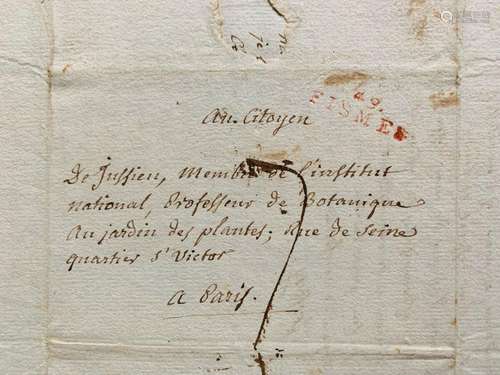 49.
FISMES
Au Citoyen
De Jussieu, Membre de l'institut
national, Professeur de Botanique
Au jardin des plantes; Rue de Seine
quartier St Victor
a Paris.
7